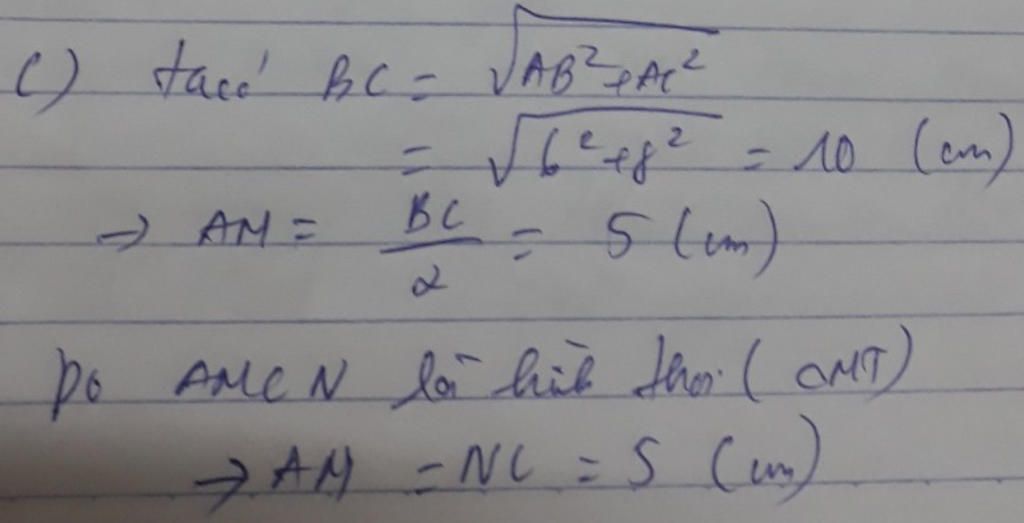 c) ta có BC = √AB²+AC²
= √6²+8² = 10 (cm)
→ AM = BC/2 = 5 (cm)
Do AMCN là hình thoi (CMT)
→ AM = NC = 5 (cm)